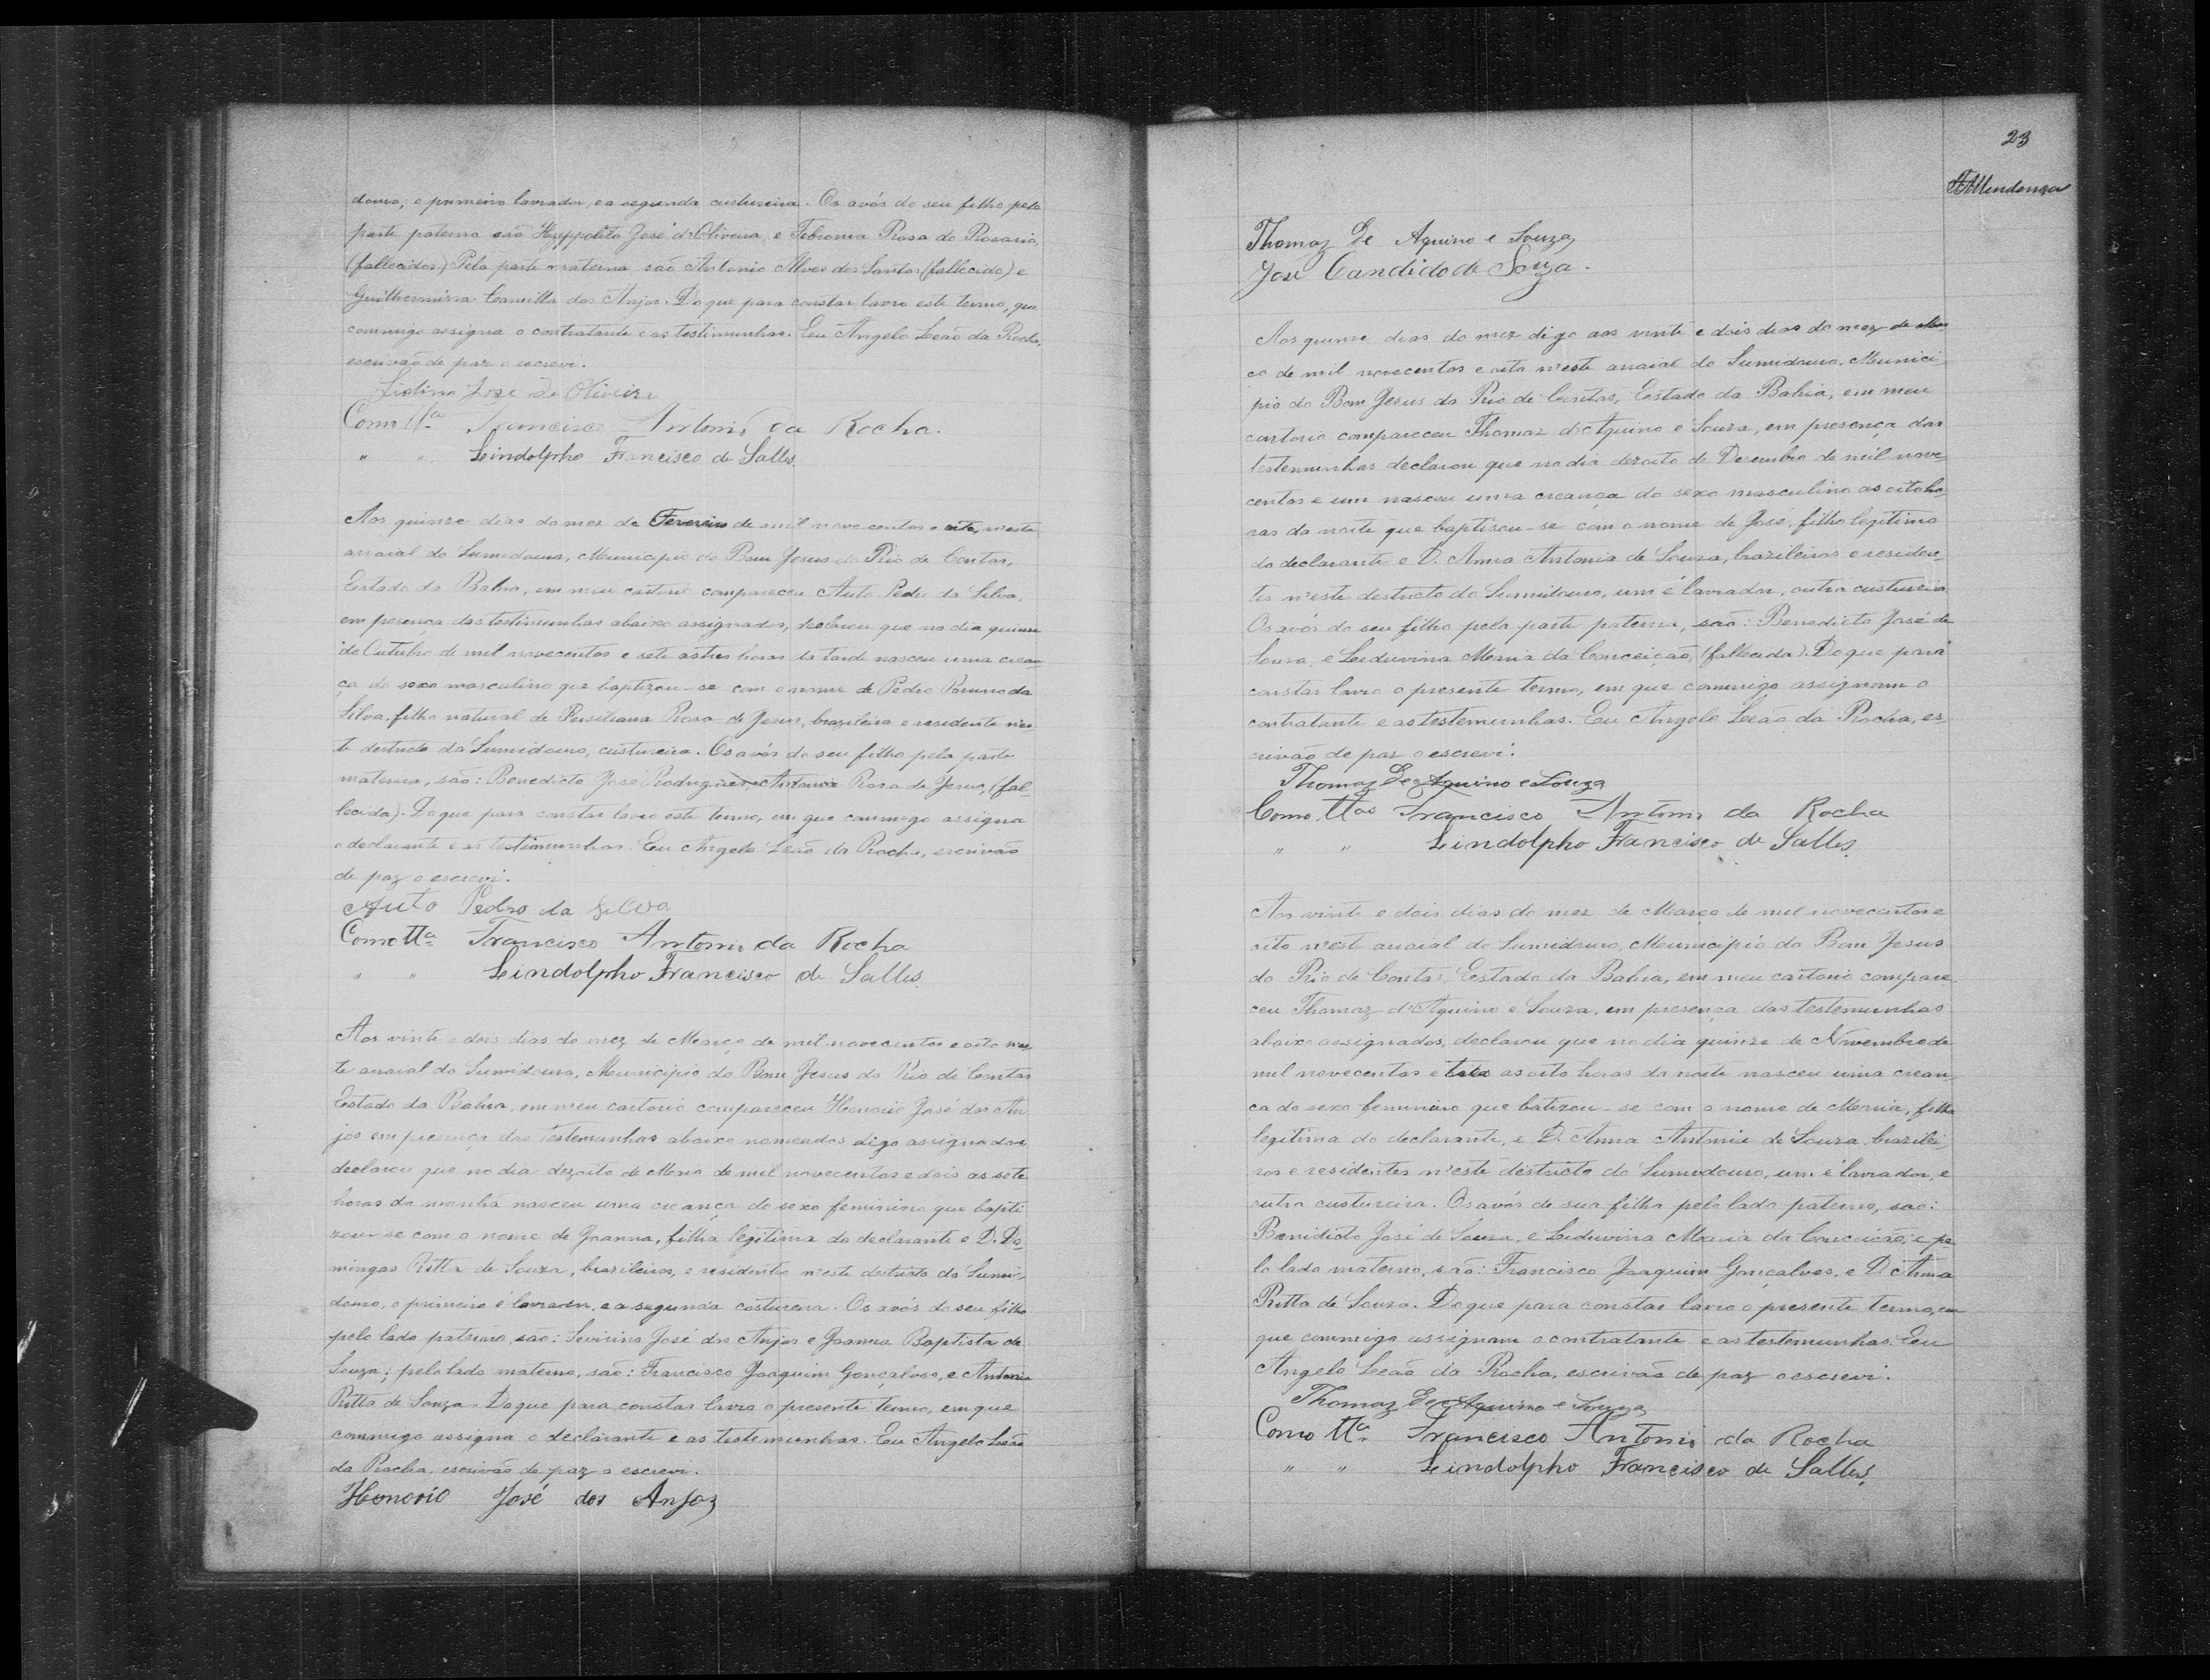 douro; o primeiro lavrador, e a segunda custureira. Os avós do seu filho pela
parte paterna são Hyppolito José d'Oliveira, e Febronia Rosa do Rosario,
(fallecidos.) Pela parte materna são Antonio Alves dos Santos (fallecido) e
Guilhermina Camilla dos Anjos. Do que para constar lavro este termo, que
commigo assigna o contratante e as testimunhas. Eu Angelo Leão da Rocha,
escrivão de paz o escrevi.
José de Oliveira
Como tta Francisco Antonio da Rocha.
" " Lindolpho Francisco de Salles
Aos quinze dias do mez de Fevereiro de mil nove centos e oito, n'este
arraial do Sumidouro, Municipio do Bom Jesus do Rio de Contas,
Estado da Bahia, em meu cartorio compareceu Auto Pedro da Silva,
em presença das testimunhas abaixo assignados, declarou que no dia quinze
de Outubro de mil novecentos e sete as tres horas da tarde nasceu uma crean
ça do sexo masculino que baptizou-se com o nome de Pedro da
Silva, filho natural de Persiliana Rosa de Jesus, brazileira e residente n'es
te destricto do Sumidouro, custureira. Os avós do seu filho pela parte
materna, são: Benedicto José Rodrigues, e Antonia Rosa de Jesus, (fal-
lecida). Do que para constar lavro este termo, em que commigo assigna
o declarante e as testimunhas. Eu Angelo Leão da Rocha, escrivão
de paz o escrevi.
Auto Pedro da Silva
Como tta Francisco Antonio da Rocha
" " Lindolpho Francisco de Salles
Aos vinte e dois dias do mez de Março de mil novecentos e oito n'es
te arraial do Sumidouro, Municipio do Bom Jesus do Rio de Contas
Estado da Bahia, em meu cartorio compareceu Honorio José dos An
jos em presença das testemunhas abaixo nomeados digo assignados
declarou que no dia dezoito de Maio de mil novecentos e dois as sete
horas da manhã nasceu uma creança do sexo feminino que bapti
zou-se com o nome de Joanna, filha legitima do declarante e D. Do-
mingas Ritta de Souza, brazileiros, e residentes n'este destricto do Sumi-
douro, o primeiro é lavrador, e a segunda costureira. Os avós do seu filho
pelo lado paterno, são: Sivirino José dos Anjos e Joanna Baptista de
Souza; pelo lado materno, são: Francisco Joaquim Gonçalves, e Antonia
Ritta de Souza. Do que para constar lavro o presente termo, em que
commigo assigna o declarante e as testemunhas. Eu Angelo Leão
da Rocha, escrivão de paz o escrevi.
Honorio José dos Anjos
23
Mendonça
Thomaz De Aquino e Souza
José Candido de Souza.
Aos quinze dias do mez digo aos vinte e dois dias do mez de Mar
ço de mil novecentos e oito n'este arraial do Sumidouro, Munici
pio do Bom Jesus do Rio de Contas, Estado da Bahia, em meu
cartorio compareceu Thomaz d'Aquino e Souza, em presença das
testemunhas declarou que no dia dezoito de Dezembro de mil nove-
centos e um nasceu uma creança do sexo masculino as oito ho-
ras da noite que baptisou-se com o nome de José, filho legitimo
do declarante e D. Anna Antonia de Souza, brazileiros e residen-
tes n'este destricto do Sumidouro, um é lavrador, outra custureira
Os avós do seu filho pela parte paterna, são: Benedicto José de
Souza, e Leduvina Maria da Conceição, (fallecida). Do que para
constar lavro o presente termo, em que commigo assignam o
contratante e as testemunhas. Eu Angelo Leão da Rocha, es-
crivão de paz o escrevi.
Thomaz De Aquino e Souza
Como ttas Francisco Antonio da Rocha
" " Lindolpho Francisco de Salles
Aos vinte e dois dias do mez de Março de mil novecentos e
oito n'este arraial do Sumidouro, Municipio do Bom Jesus
do Rio de Contas, Estado da Bahia, em meu cartorio compare
ceu Thomaz d'Aquino e Souza, em presença das testemunhas
abaixo assignados, declarou que no dia quinze de Novembro de
mil novecentos e tres as oito horas da noite nasceu uma crean
ca do sexo feminino que batizou-se com o nome de Maria, filha
legitima do declarante, e D. Anna Antonia de Souza, brazilei-
ros e residentes n'este districto do Sumidouro, um é lavrador, e
outra custureira. Os avós de sua filha pelo lado paterno, são:
Benidicto José de Souza, e Leduvina Maria da Conceição, e pe
lo lado materno, são: Francisco Joaquim Gonçalves, e D. Anna
Ritta de Souza. Do que para constar lavro o presente termo, em
que commigo assignam o contratante e as testemunhas. Eu
Angelo Leão da Rocha, escrivão de paz o escrevi.
Thomaz De Aquino e Souza
Como tta Francisco Antonio da Rocha
" " Lindolpho Francisco de Salles